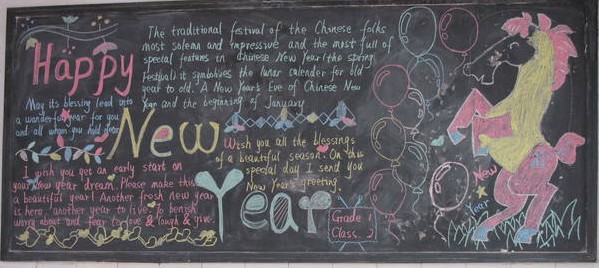 Happy
New
Year
The traditional festival of the Chinese folks
most solemn and impressive and the most full of
special features in Chinese New Year (the spring
Festival) it symbolives the lunar calender for old
year to old. A New Year's Eve of Chinese New
Year and the beginning of January
May its blessing lead into
a wonderful year for you
and all whom you hold dear
Wish you all the blessings
of a beautiful season. On this
special day I send you
New Year's greeting.
I wish you get an early start on
your New year dream. Please make this
a beautiful year! Another fresh new year
is here another year to live. To banish
worry about and fear to love & laugh & give.
Grade 1
Class 2
New
Year